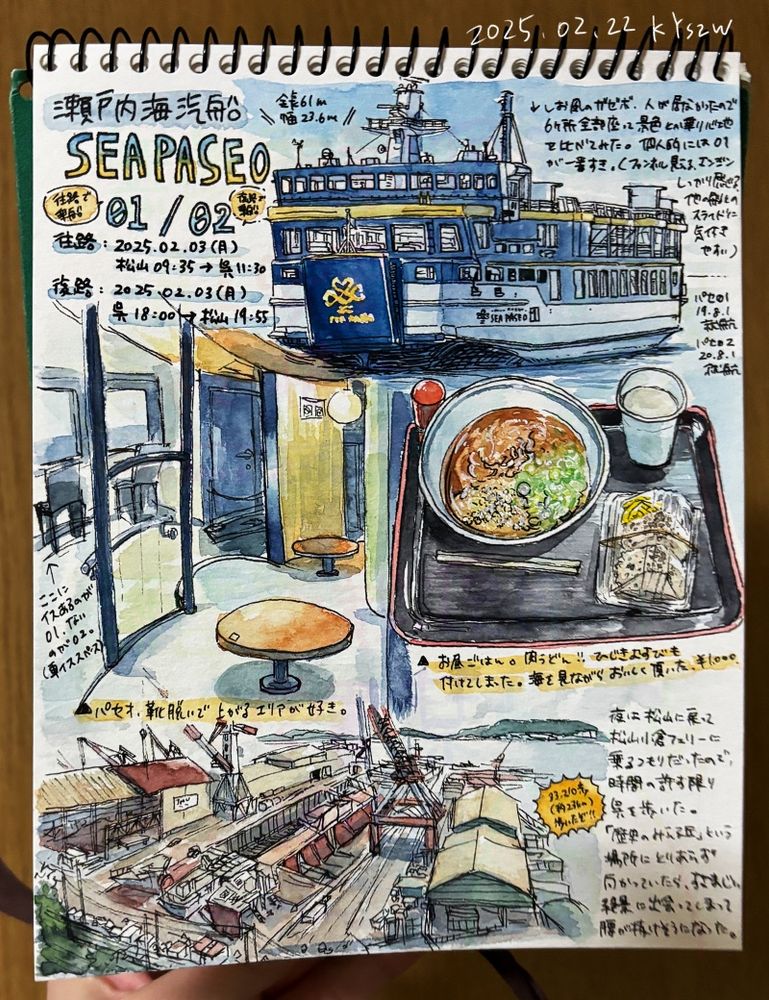 2025.02.22 kYszw
瀬戸内海汽船
全長61m
幅23.6m
SEA PASEO
01/02
往路で
乗船
復路で
乗船
往路：2025.02.03(月)
松山09:35→呉11:30
復路：2025.02.03(月)
呉18:00→松山19:55
しお風のガゼボ。人が居なかったので
6ヶ所全部座って景色とか乗り心地
を比べてみた。個人的には01
が一番すき。(ファンネル見える、エンジン
しっかり感じる、
他の船との
スライドに
気付き
やすい)
パセオ1
19.8.1
就航
パセオ2
20.8.1
就航
SEA PASEO
SEA PASEO
ここに
イスあるのが
01、ない
のが02。
(車イススペース)
▲パセオ、靴脱いで上がるエリアが好き。
▲お昼ごはん。肉うどん!!ひじきむすびも
付けてしまった。海を見ながらおいしく頂いた。¥1,000
夜は松山に戻って
松山小倉フェリーに
乗るつもりだったので、
時間の許す限り
呉を歩いた。
「歴史のみえる丘」という
場所にとりあえず
向かっていたら、すさまじい
絶景に出会ってしまって
腰が抜けそうになった。
33,210歩
(約23km)
歩いたぞ!!